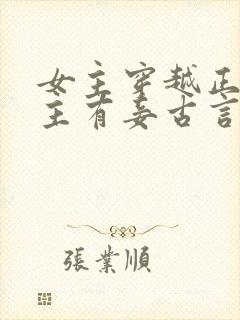 女主穿越正
主有妾古言
張業順